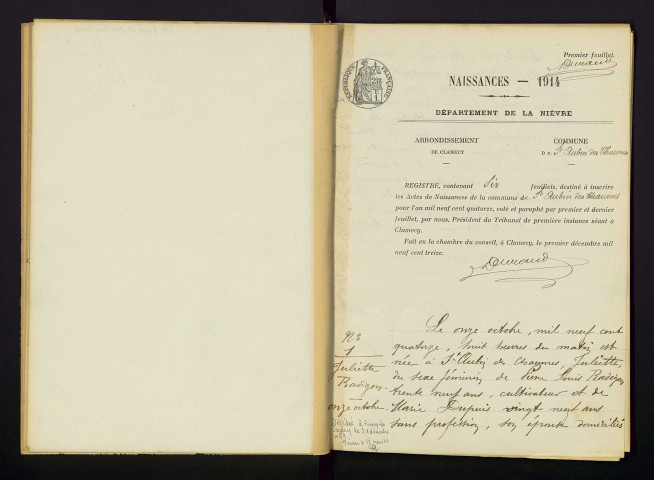 Premier feuillet.
Durand
RÉPUBLIQUE FRANÇAISE
NAISSANCES — 1914
DÉPARTEMENT DE LA NIÈVRE
ARRONDISSEMENT
DE CLAMECY
COMMUNE
De St Aubin des Chaumes
REGISTRE, contenant Six feuillets, destiné à inscrire
les Actes de Naissances de la commune de St Aubin des Chaumes
pour l'an mil neuf cent quatorze, coté et paraphé par premier et dernier
feuillet, par nous, Président du Tribunal de première instance séant à
Clamecy.
Fait en la chambre du conseil, à Clamecy, le premier décembre mil
neuf cent treize.
Durand
No
1
Juliette
Radigon
onze octobre
Décédée à
Le onze octobre, mil neuf cent
quatorze, huit heures du matin est
née à St Aubin des Chaumes, Juliette,
du sexe féminin, de Pierre Louis Radigon
trente neuf ans, cultivateur et de
Marie Dupuis vingt neuf ans
sans profession, son épouse domiciliés